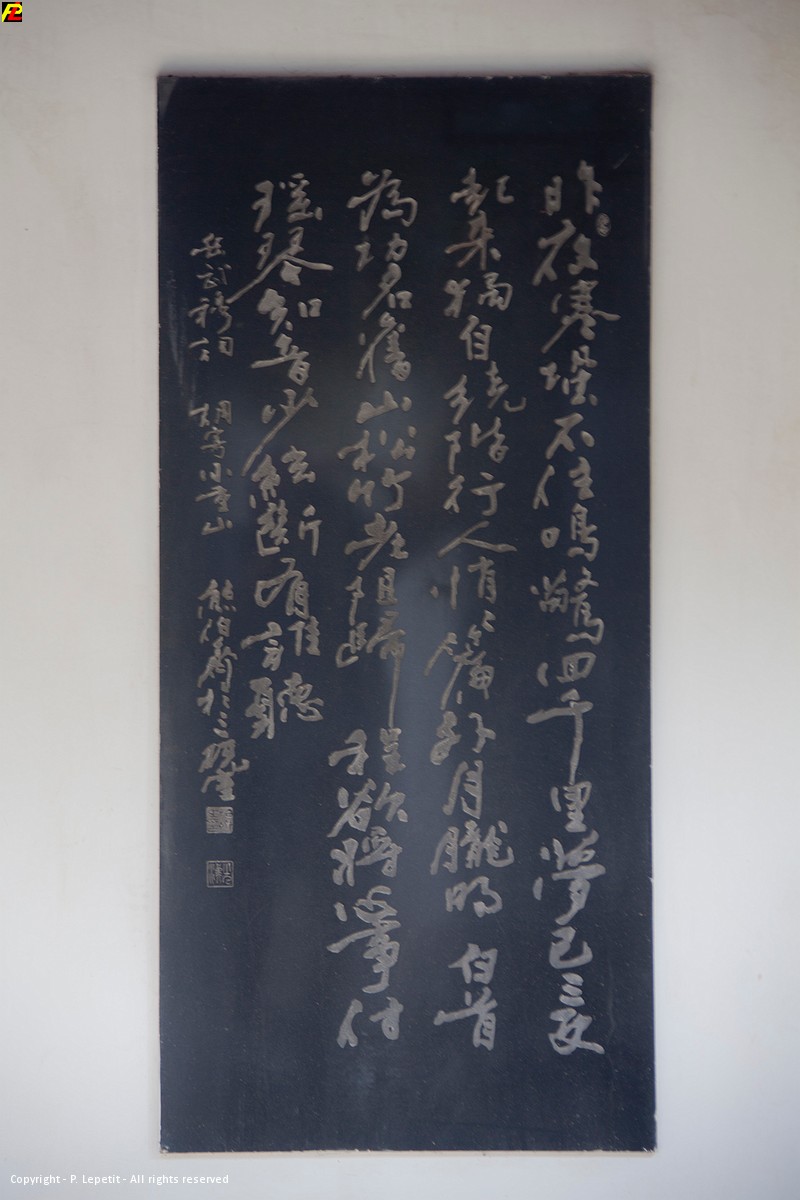 昨夜寒蛩不住鳴驚回千里夢已三更
起來獨自繞階行人悄悄簾外月朧明 白首
為功名舊山松竹老阻歸程欲將心事付
瑤琴知音少絃斷有誰聽
岳武穆詞 調寄小重山 熊伯齊於三硯堂
Copyright - P. Lepetit - All rights reserved